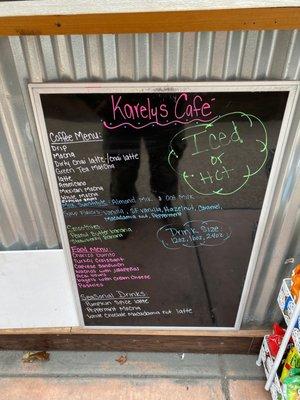 Karely's Cafe
Iced
or
HOT
Coffee Menu:
Drip
Mocha
Dirty Chai latte/chai latte
Green Tea Matcha
latte
Americano
Mexican Mocha
White Mocha
Milk Substitute: Almond Milk, & Oat Milk
Vanilla, SF vanilla, Hazelnut, Caramel,
Macadamia nut, Peppermint
Peanut Butter banana
Strawberry banana
Drink Size:
12oz, 16oz, 24oz
Food Menu:
Turkey Croissant
Caprese Sandwich
bagels with Cream Cheese
Pastries
Seasonal Drinks:
Pumpkin Spice latte
Peppermint Mocha
White Chocolate Macadamia nut latte